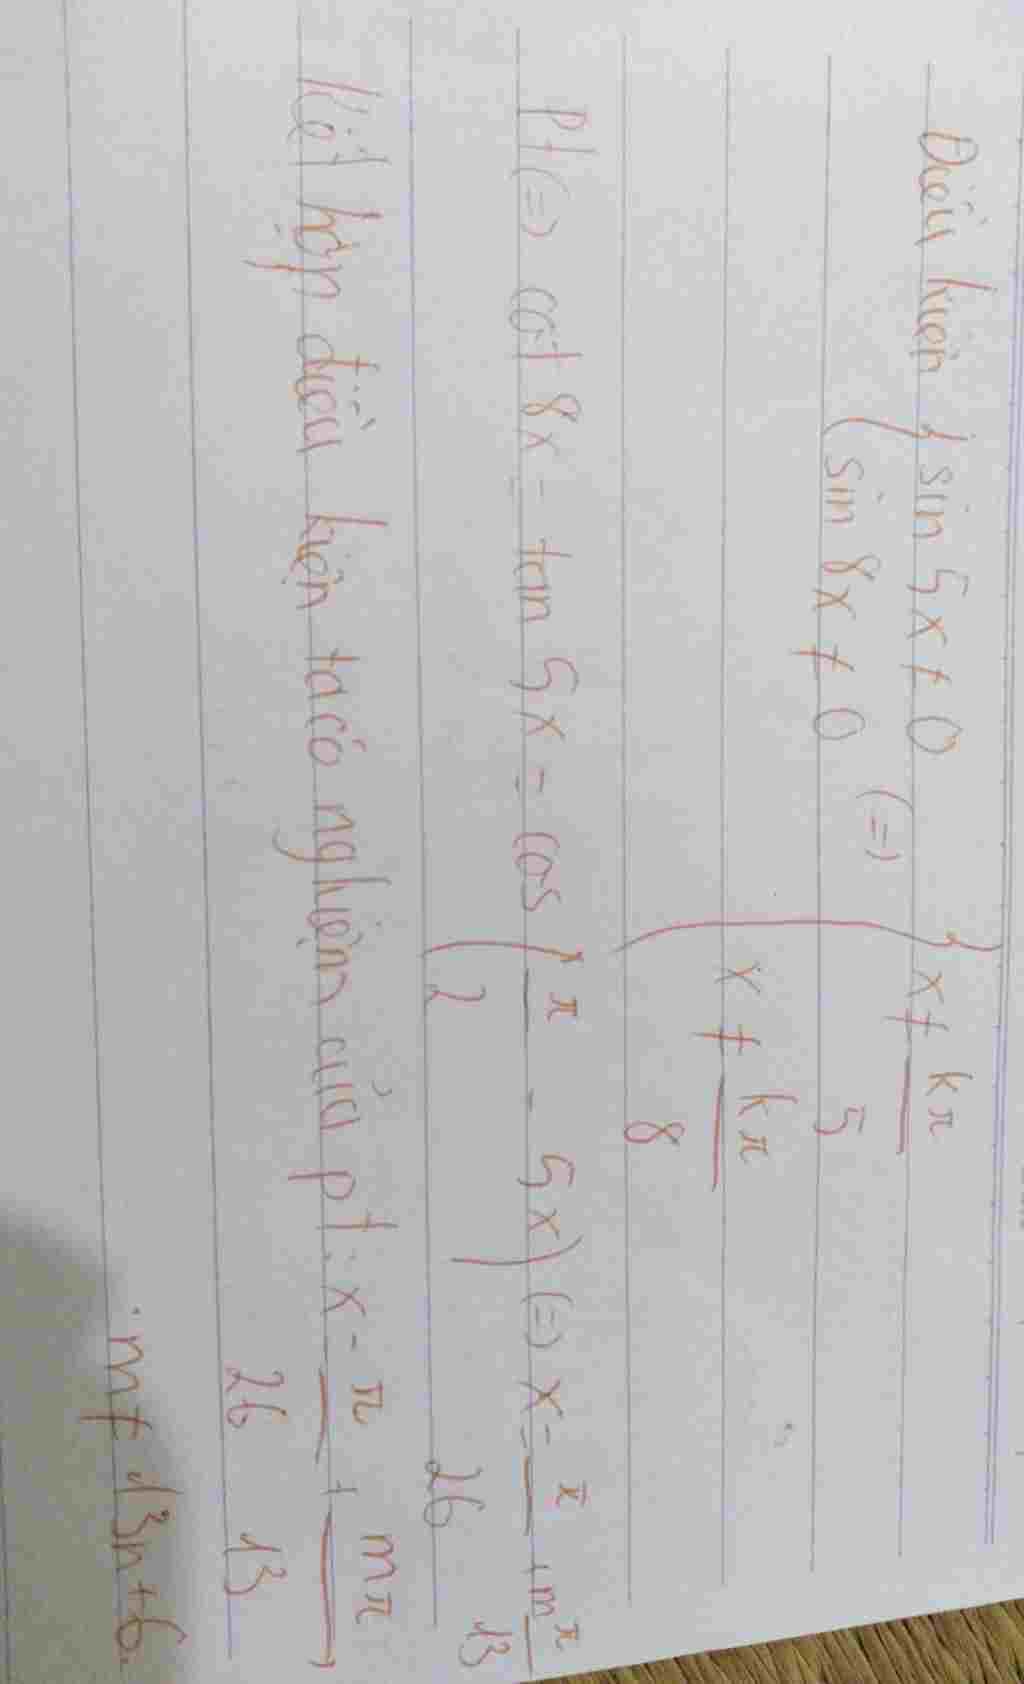 Điều kiện { sin 5x ≠ 0
sin 8x ≠ 0 (=) { x ≠ kπ/5
x ≠ kπ/8
Pt (=) cot 8x = tan 5x = cos (π/2 - 5x) (=) x = π/26 + mπ/13
Kết hợp điều kiện ta có nghiệm của pt: x = π/26 + mπ/13
m ≠ 13n + 6